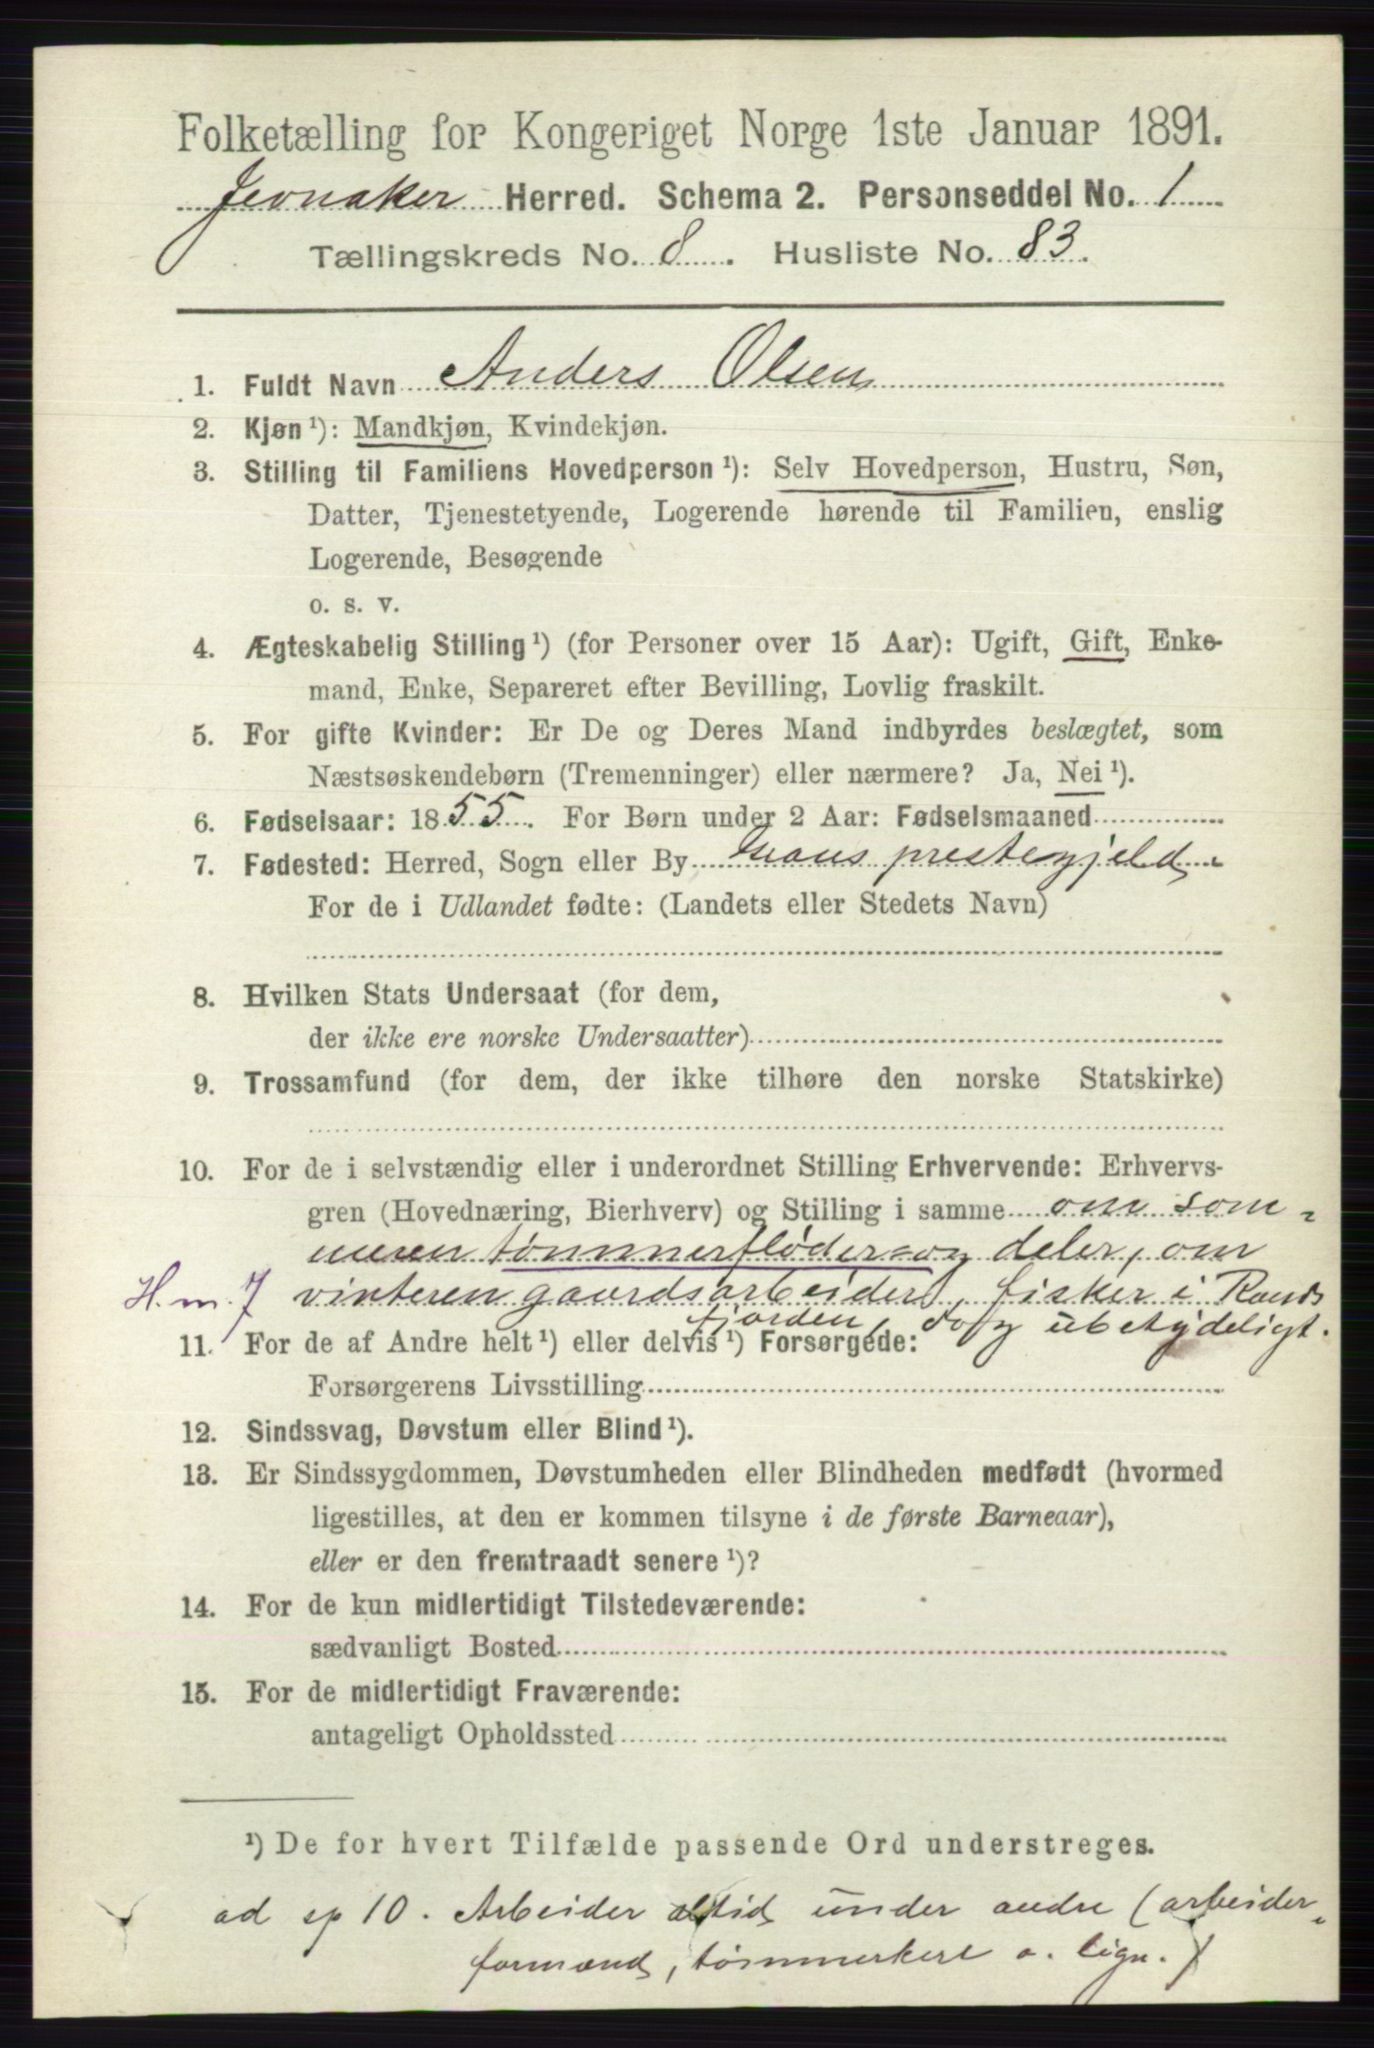 Folketælling for Kongeriget Norge 1ste Januar 1891.
Jevnaker Herred. Schema 2. Personseddel No. 1
Tællingskreds No. 8. Husliste No. 83.
1. Fuldt Navn Anders Olsen
2. Kjøn ¹): Mandkjøn, Kvindekjøn.
3. Stilling til Familiens Hovedperson ¹): Selv Hovedperson, Hustru, Søn,
Datter, Tjenestetyende, Logerende hørende til Familien, enslig
Logerende, Besøgende
o. s. v.
4. Ægteskabelig Stilling ¹) (for Personer over 15 Aar): Ugift, Gift, Enke-
mand, Enke, Separeret efter Bevilling, Lovlig fraskilt.
5. For gifte Kvinder: Er De og Deres Mand indbyrdes beslægtet, som
Næstsøskendebørn (Tremenninger) eller nærmere? Ja, Nei ¹).
6. Fødselsaar: 1855. For Børn under 2 Aar: Fødselsmaaned
7. Fødested: Herred, Sogn eller By prestegjeld.
For de i Udlandet fødte: (Landets eller Stedets Navn)
8. Hvilken Stats Undersaat (for dem,
der ikke ere norske Undersaatter)
9. Trossamfund (for dem, der ikke tilhøre den norske Statskirke)
10. For de i selvstændig eller i underordnet Stilling Erhvervende: Erhvervs-
gren (Hovednæring, Bierhverv) og Stilling i samme om som-
meren tømmerfløder og deler, om
H. m. 7 vinteren gaardsarbeider, fisker i Rands
fjorden, dog ubetydeligt.
11. For de af Andre helt ¹) eller delvis ¹) Forsørgede:
Forsørgerens Livsstilling
12. Sindssvag, Døvstum eller Blind ¹).
13. Er Sindssygdommen, Døvstumheden eller Blindheden medfødt (hvormed
ligestilles, at den er kommen tilsyne i de første Barneaar),
eller er den fremtraadt senere ¹)?
14. For de kun midlertidigt Tilstedeværende:
sædvanligt Bosted
15. For de midlertidigt Fraværende:
antageligt Opholdssted
¹) De for hvert Tilfælde passende Ord understreges.
ad sp 10. Arbeider altid under andre (arbeider-
formænd, tømmerkert o. lign.)